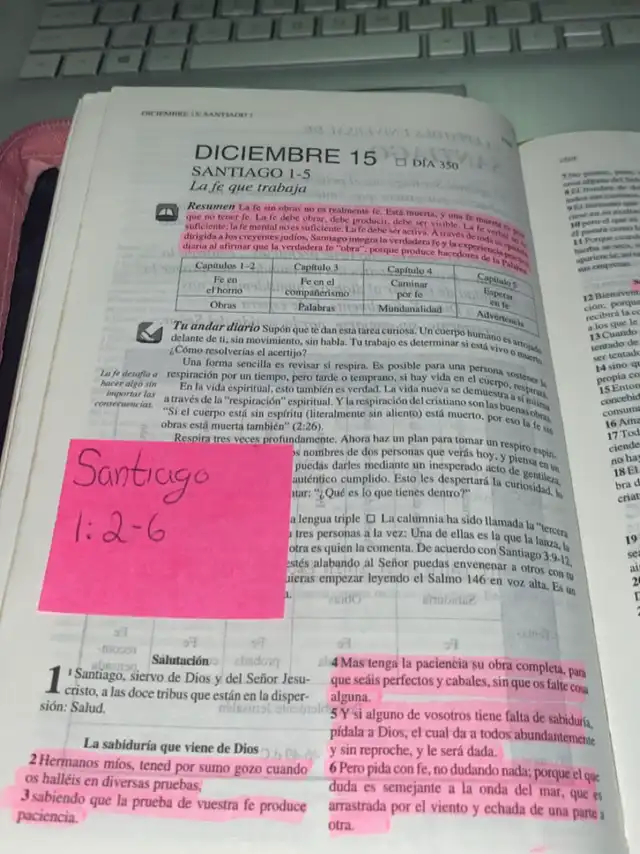 DICIEMBRE 15 SANTIAGO 1
DICIEMBRE 15 □ DÍA 350
SANTIAGO 1-5
La fe que trabaja
Resumen La fe sin obras no es realmente fe. Está muerta, y una fe muerta es
que no tener fe. La fe debe obrar, debe producir, debe ser visible. La fe verbal no es
suficiente; la fe mental no es suficiente. La fe debe ser activa. A través de toda su
dirigida a los creyentes judíos, Santiago integra la verdadera fe y la experiencia práctica
diaria al afirmar que la verdadera fe "obra", porque produce hacedores de la Palabra
Capítulos 1-2 Capítulo 3 Capítulo 4 Capítulo 5
Fe en el horno Fe en el compañerismo Caminar por fe Esperar en fe
Obras Palabras Mundanalidad Advertencia
Tu andar diario Supón que te dan esta tarea curiosa. Un cuerpo humano es arrojado
delante de ti, sin movimiento, sin habla. Tu trabajo es determinar si está vivo o muerto.
¿Cómo resolverías el acertijo?
Una forma sencilla es revisar si respira. Es posible para una persona sostener la
respiración por un tiempo, pero tarde o temprano, si hay vida en el cuerpo, respirará.
En la vida espiritual, esto también es verdad. La vida nueva se demuestra a sí misma
a través de la "respiración" espiritual. Y la respiración del cristiano son las buenas obras.
"Si el cuerpo está sin espíritu (literalmente sin aliento) está muerto, por eso la fe sin
obras está muerta también" (2:26).
La fe desafía a
hacer algo sin
importar las
consecuencias.
Respira tres veces profundamente. Ahora haz un plan para tomar un respiro espiri-
s nombres de dos personas que verás hoy, y piensa en un
puedas darles mediante un inesperado acto de gentileza,
auténtico cumplido. Esto les despertará la curiosidad,
tar: "¿Qué es lo que tienes dentro?"
Santiago
1:2-6
a lengua triple □ La calumnia ha sido llamada la "tercera
a tres personas a la vez: Una de ellas es la que la lanza, la
otra es quien la comenta. De acuerdo con Santiago 3:9-12,
estés alabando al Señor puedas envenenar a otros con tu
uieras empezar leyendo el Salmo 146 en voz alta. Es un
Salutación
1 ¹ Santiago, siervo de Dios y del Señor Jesu-
cristo, a las doce tribus que están en la disper-
sión: Salud.
La sabiduría que viene de Dios
2 Hermanos míos, tened por sumo gozo cuando
os halléis en diversas pruebas,
3 sabiendo que la prueba de vuestra fe produce
paciencia.
4 Mas tenga la paciencia su obra completa, para
que seáis perfectos y cabales, sin que os falte cosa
alguna.
5 Y si alguno de vosotros tiene falta de sabiduría,
pídala a Dios, el cual da a todos abundantemente
y sin reproche, y le será dada.
6 Pero pida con fe, no dudando nada; porque el que
duda es semejante a la onda del mar, que es
arrastrada por el viento y echada de una parte a
otra.
12 Bienaven
ción; porque
recibirá la co
a los que le
13 Cuando
tentado de
ser tentado
14 sino qu
propia co
15 Enton
concebid
consuma
16 Ama
17 Tod
ciende
no hay
18 El
bra d
criat
19